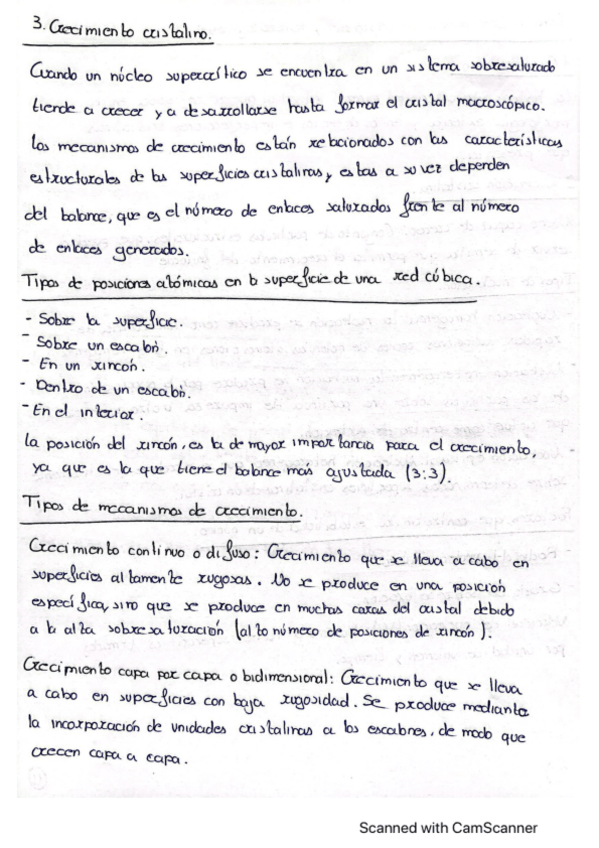 3. Crecimiento cristalino.
Cuando un núcleo supercrítico se encuentra en un sistema sobresaturado
tiende a crecer y a desarrollarse hasta formar el cristal macroscópico.
Los mecanismos de crecimiento están relacionados con las características
estructurales de las superficies cristalinas, y estas a su vez dependen
del balance, que es el número de enlaces saturados frente al número
de enlaces generados.
Tipos de posiciones atómicas en la superficie de una red cúbica.
- Sobre la superficie.
- Sobre un escalón.
- En un rincón.
- Dentro de un escalón.
- En el interior.
La posición del rincón, es la de mayor importancia para el crecimiento,
ya que es la que tiene el balance más ajustada (3:3).
Tipos de mecanismos de crecimiento.
Crecimiento continuo o difuso: Crecimiento que se lleva a cabo en
superficies altamente rugosas. No se produce en una posición
específica, sino que se produce en muchas caras del cristal debido
a la alta sobresaturación (alto número de posiciones de rincón).
Crecimiento capa por capa o bidimensional: Crecimiento que se lleva
a cabo en superficies con baja rugosidad. Se produce mediante
la incorporación de unidades cristalinas a los escalones, de modo que
crecen capa a capa.
Scanned with CamScanner